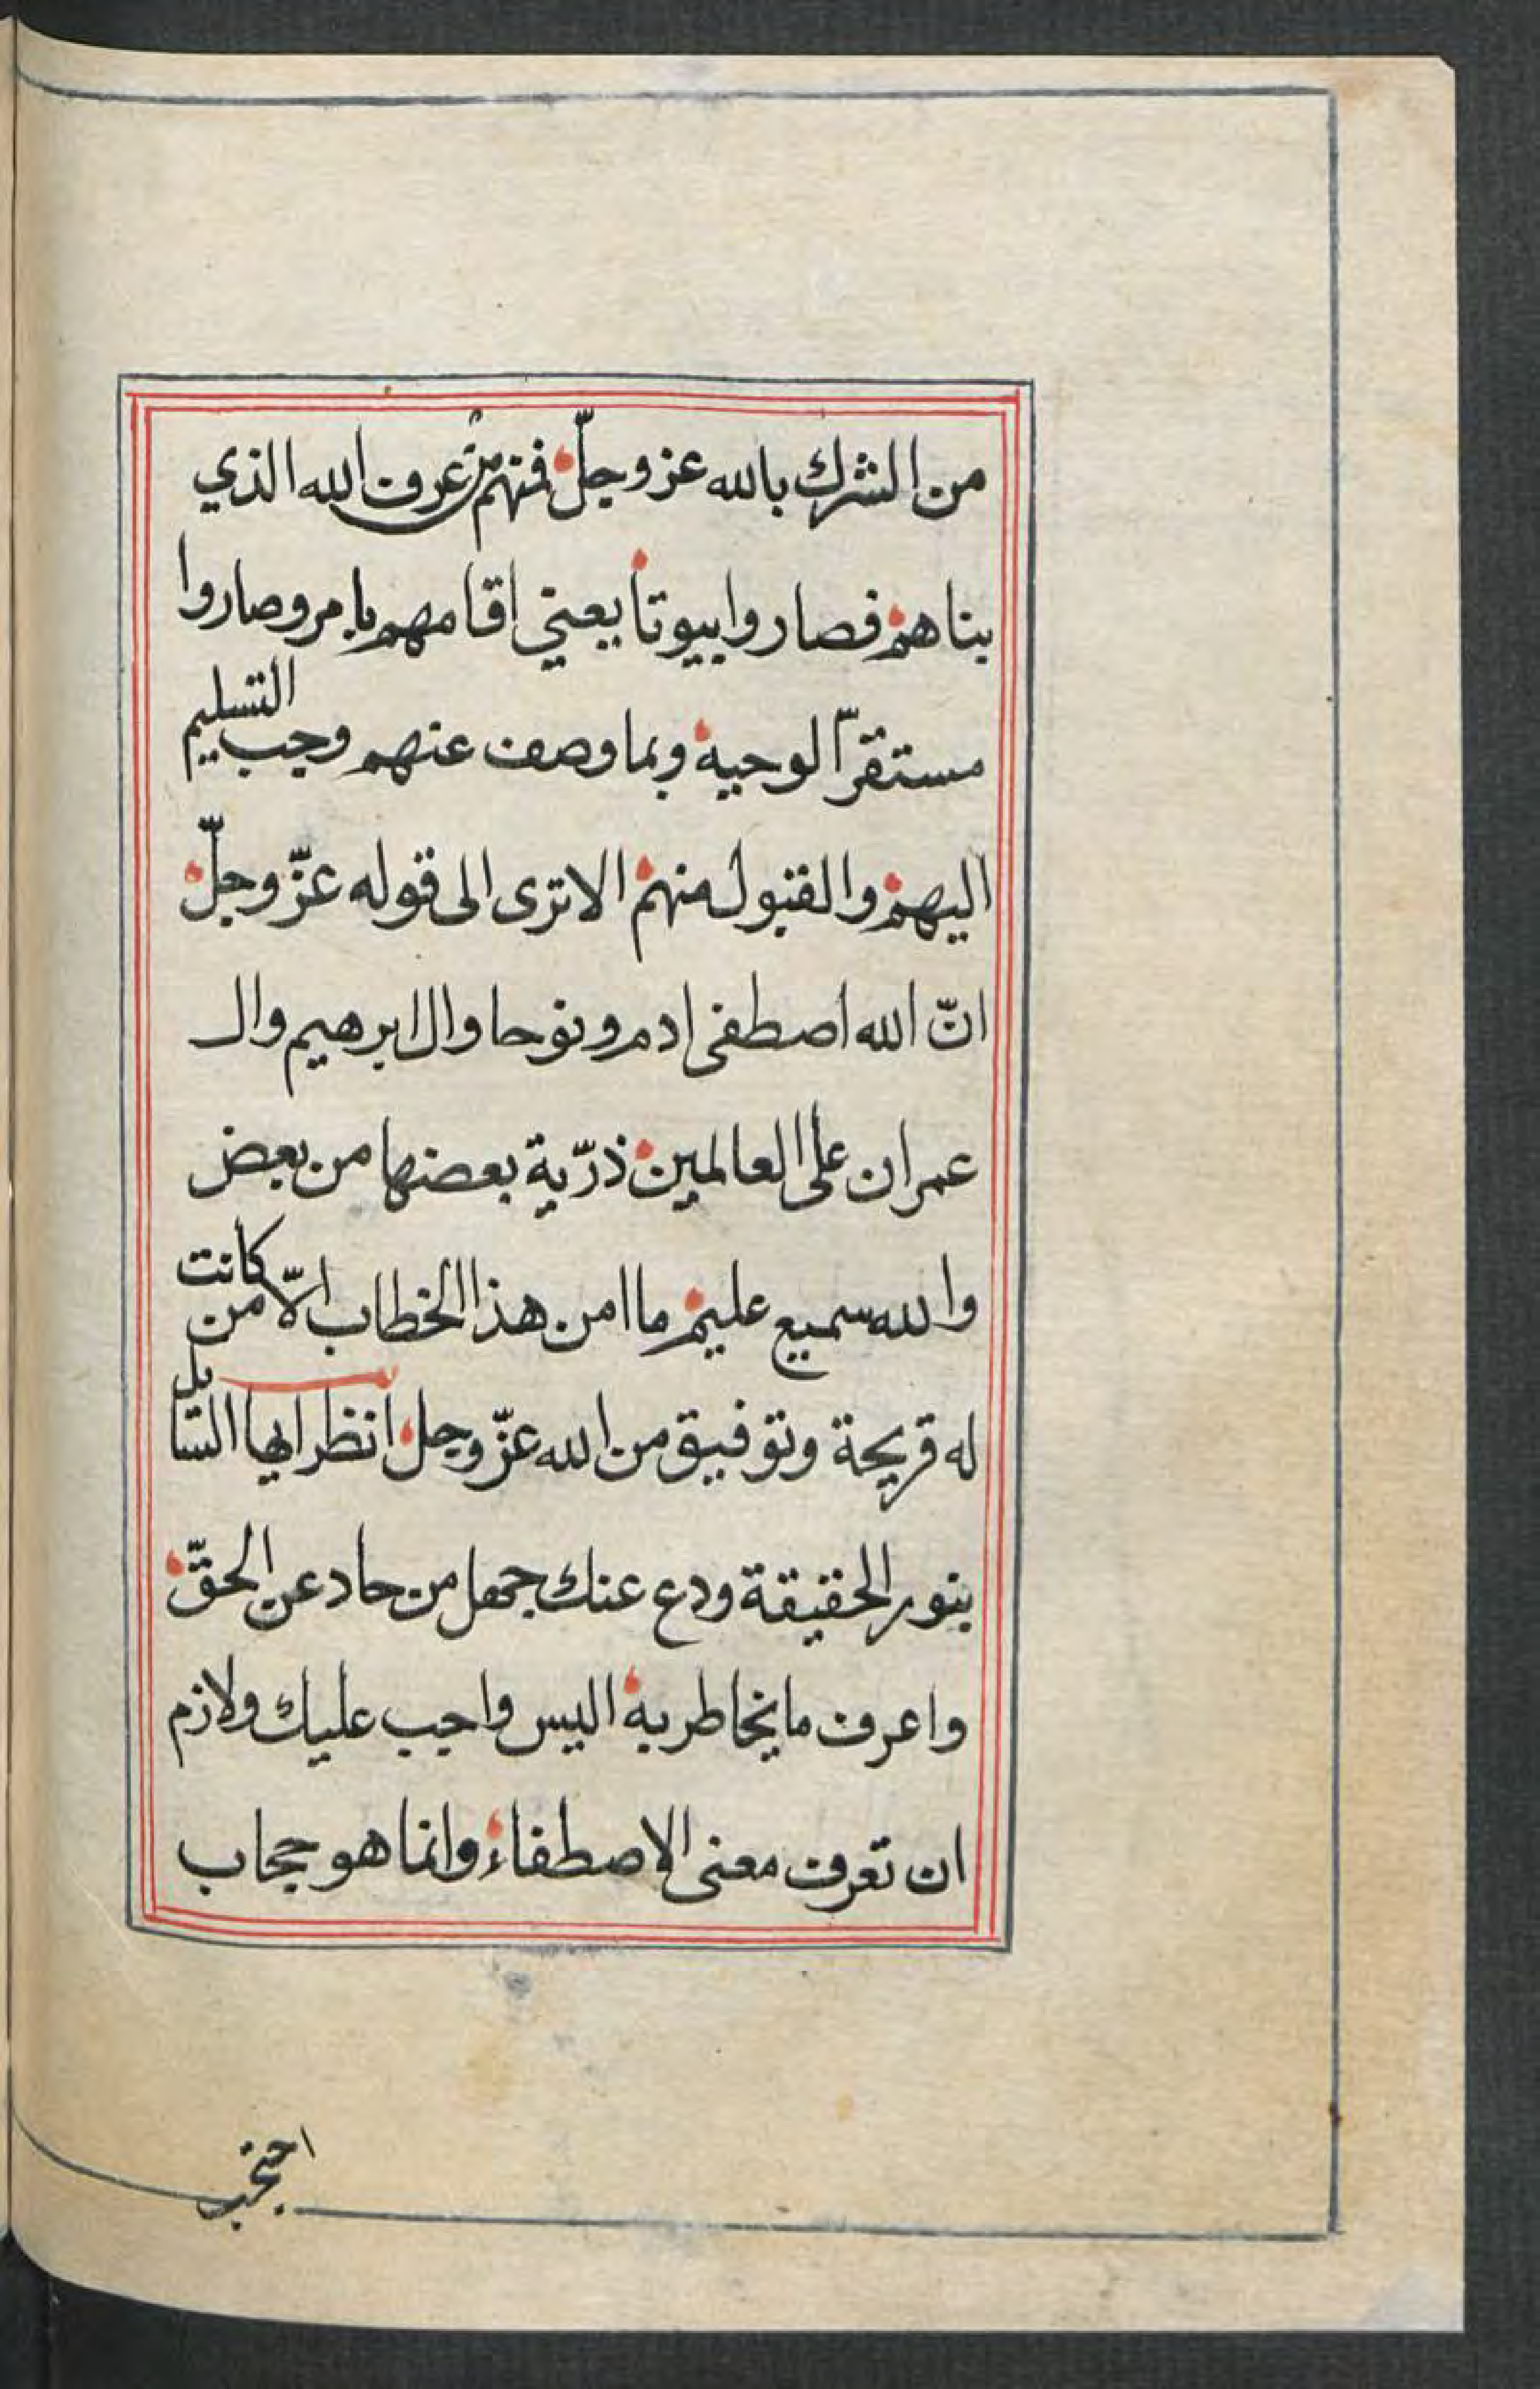 من الشرك بالله عز وجلّ فمنهم من عرف الله الذي
بناهم فصاروا بيوتا يعني اقامهم بامر وصاروا
مستقرّا لوحيه وبما وصف عنهم وجب التسليم
اليهم والقبول منهم الا ترى الى قوله عزّ وجلّ
انّ الله اصطفى ادم ونوحا وال ابرهيم وال
عمران على العالمين ذرّية بعضها من بعض
والله سميع عليم ما امن هذا الخطاب الّا من كانت
له قريحة وتوفيق من الله عزّ وجل انظر ايها السّايل
بنور الحقيقة ودع عنك جهل من حاد عن الحقّ
واعرف ما يخاطر به اليس واجب عليك ولازم
ان تعرف معنى الاصطفاء وانما هو حجاب
احتجب